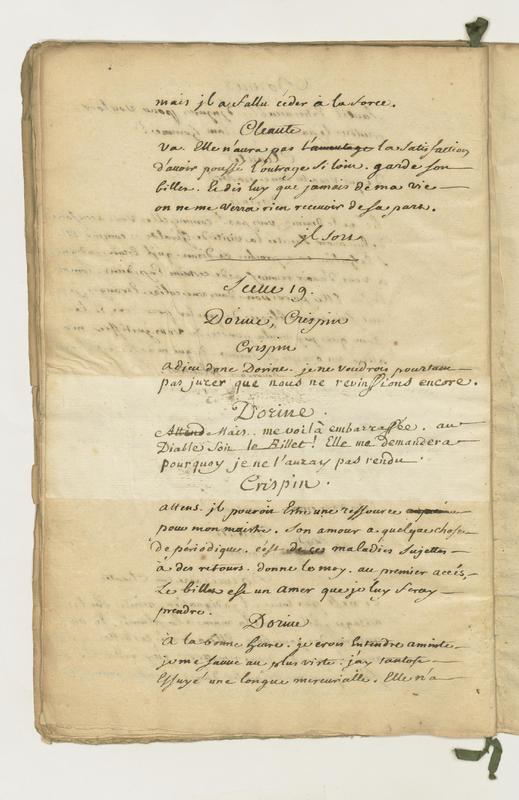 mais jl a fallu céder à la force.
Cleante
va. Elle n'aura pas l'avantage la satisfaction
d'avoir poussé l'outrage si loin. garde son
billet. Et dis luy que jamais de ma vie
on ne me verra rien recevoir de sa part.
jl sort
Scene 19.
Dorine, Crispin
Crispin
adieu donc Dorine. je ne voudrois pourtant
pas jurer que nous ne revinssions encore.
Dorine.
Attend Mais.. me voilà embarrassée. au
Diable soit le Billet! Elle me demandera
pourquoy je ne l'auray pas rendu.
Crispin.
attens. jl pouroit Estre une ressource
pour mon maistre. Son amour a quelque chose
de périodique. c'est de ces maladies sujettes
à des retours. donne le moy. au premier accés,
Le billet est un amer que je luy feray
prendre.
Dorine
à la bonne heure. je crois Entendre aminte
je me sauve au plus viste. j'ay tantost
Essuyé une longue mercurialle. Elle n'a